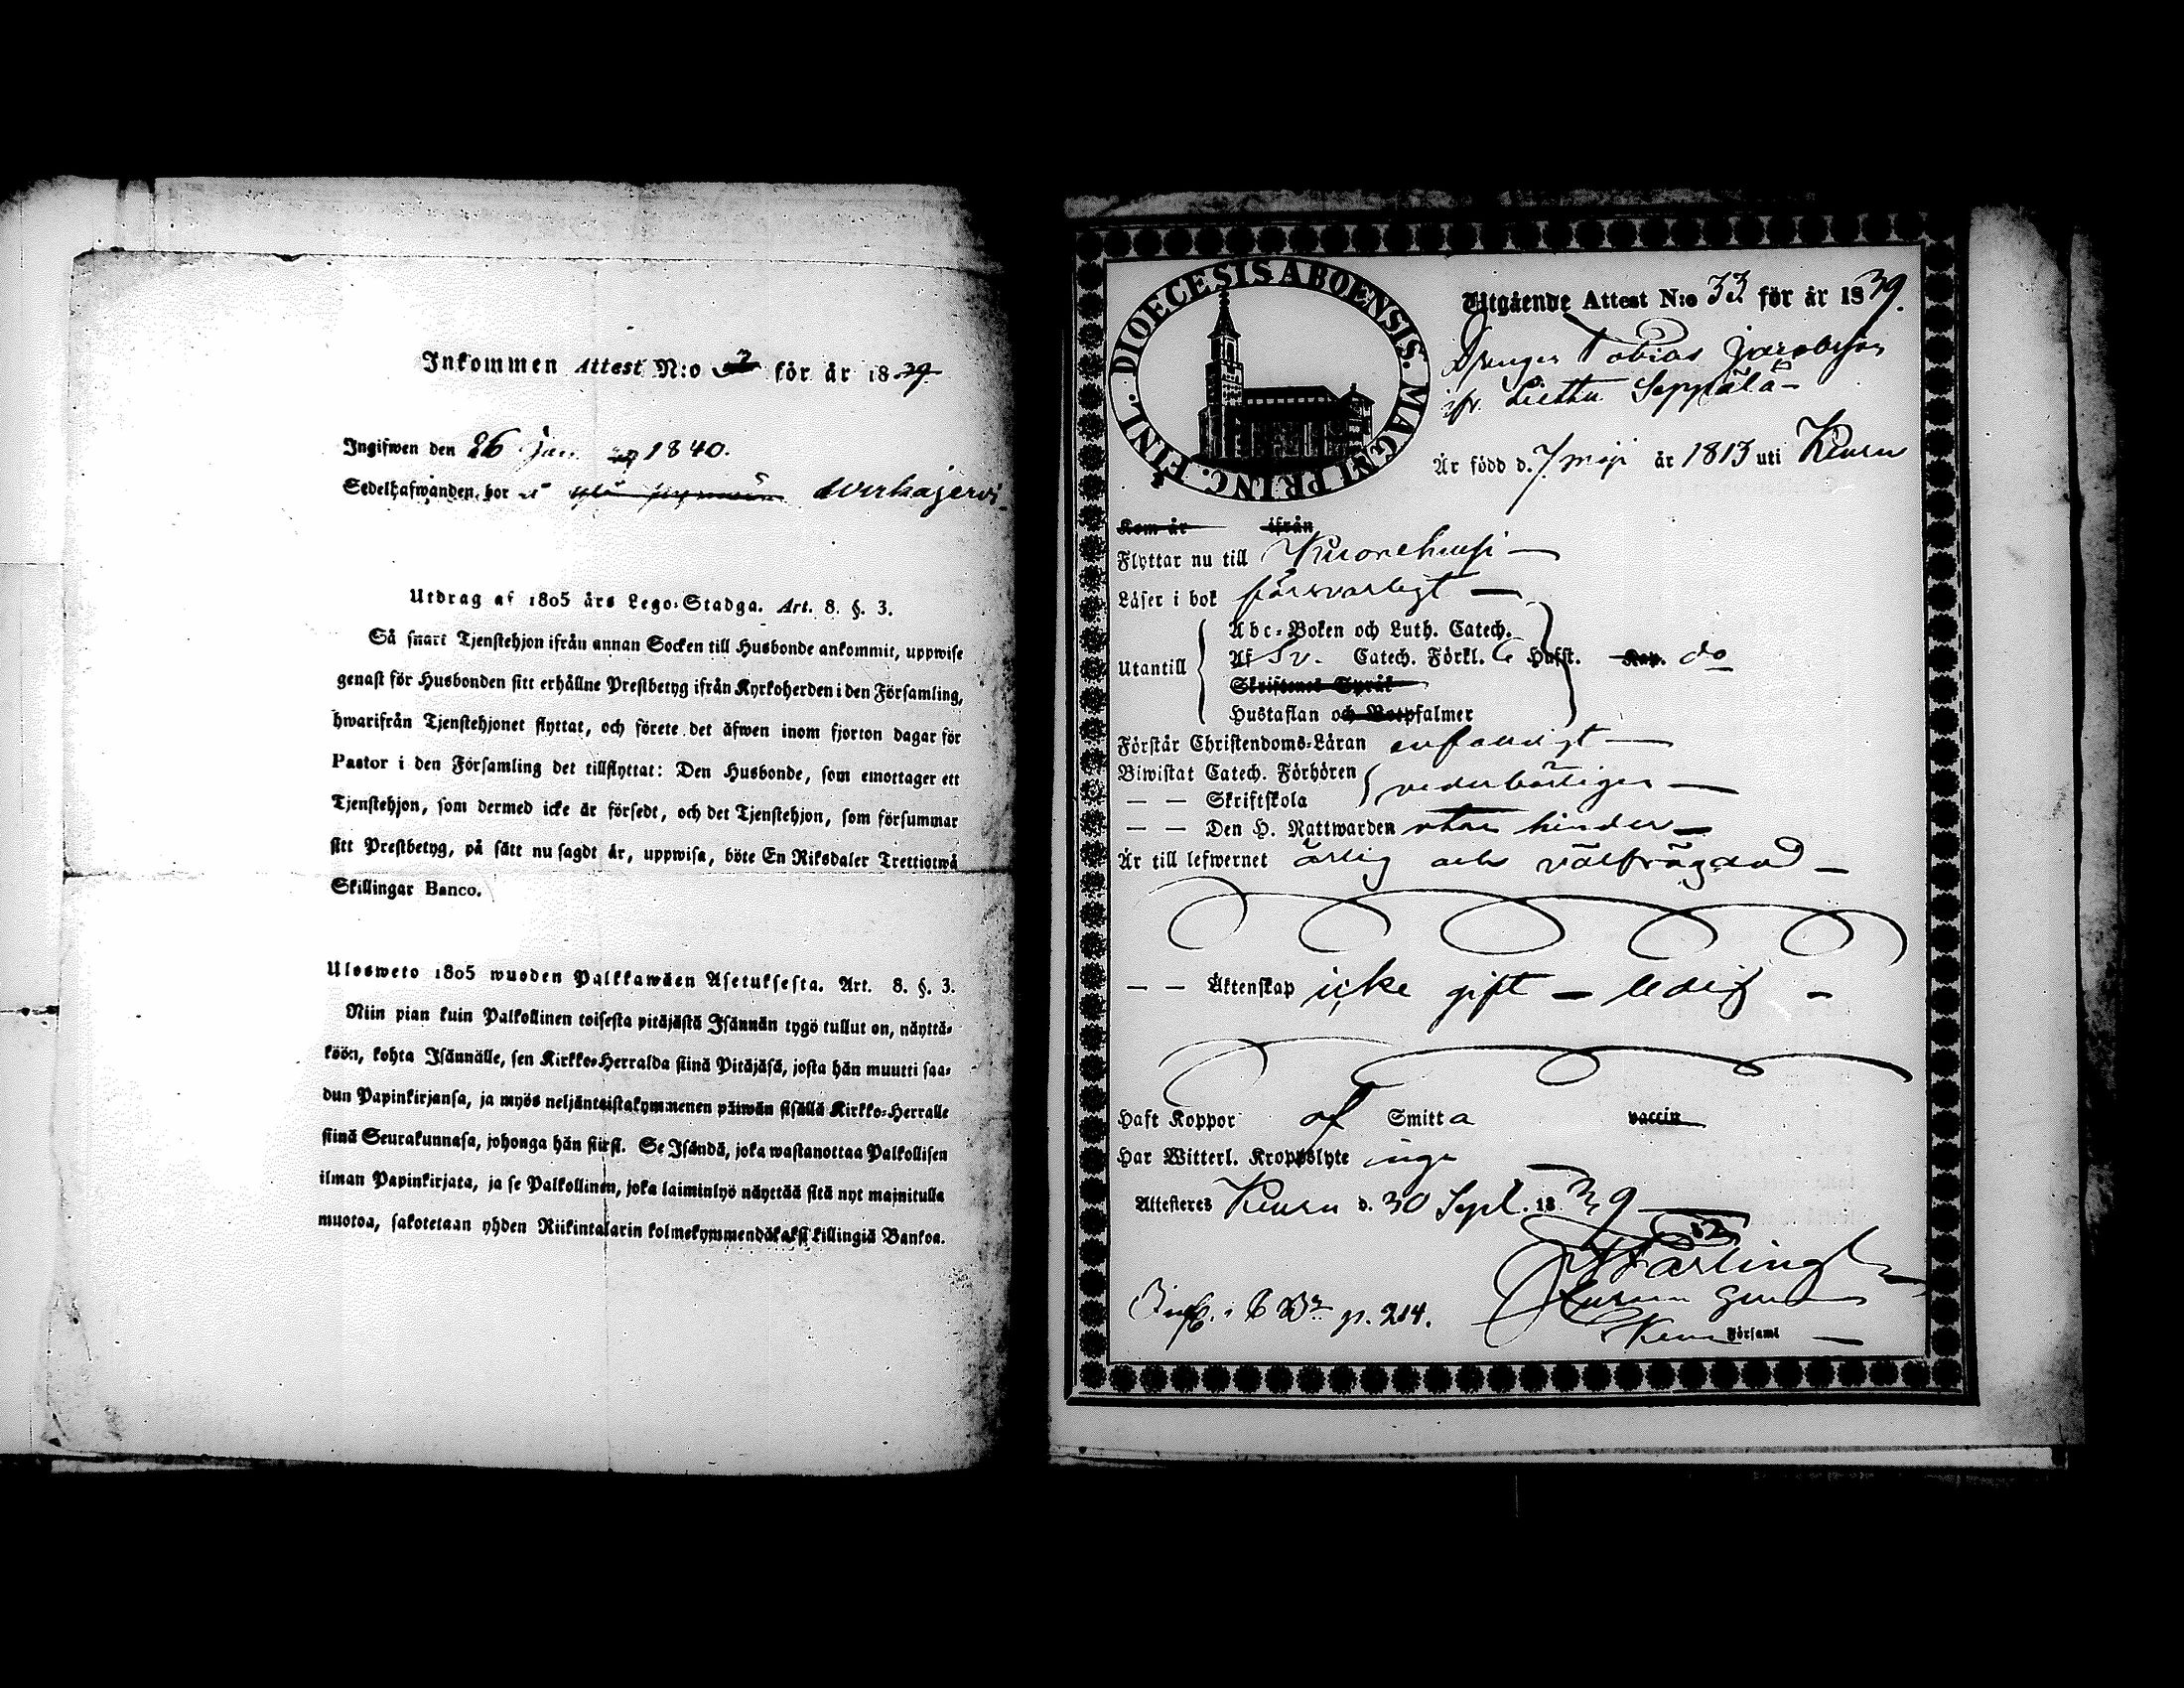 Inkommen Attest N:o för år 1839
Ingifwen den 26 Jan. 1840.
Sedelhafwanden bor
Utdrag af 1805 års Lego-Stadga. Art. 8. §. 3.
Så snart Tjenstehjon ifrån annan Socken till Husbonde ankommit, uppwise
genast för Husbonden sitt erhållne Prestbetyg ifrån Kyrkoherden i den Församling,
hwarifrån Tjenstehjonet flyttat, och förete det äfwen inom fjorton dagar för
Pastor i den Församling det tillflyttat: Den Husbonde, som emottager ett
Tjenstehjon, som dermed icke är försedt, och det Tjenstehjon, som försummar
sitt Prestbetyg, på sätt nu sagdt är, uppwisa, böte En Riksdaler Trettiotwå
Skillingar Banco.
Ulosweto 1805 wuoden Palkkawäen Asetuksesta. Art. 8. §. 3.
Niin pian kuin Palkollinen toisesta pitäjästä Isännän tygö tullut on, näyttä-
köön, kohta Isännälle, sen Kirkko-Herralda siinä Pitäjäsä, josta hän muutti saa-
dun Papinkirjansa, ja myös neljäntoistakymmenen päiwän sisällä Kirkko-Herralle
siinä Seurakunnasa, johonga hän siirsi. Se Isändä, joka wastanottaa Palkollisen
ilman Papinkirjata, ja se Palkollinen, joka laiminlyö näyttää sitä nyt mainitulla
muotoa, sakotetaan yhden Riikintalarin kolmekymmendäkaksi killingiä Bankoa.
DIOECESIS ABOENSIS. MAGNI PRINC. FINL.
Utgående Attest N:o 33 för år 1839.
Drengen Tobias Jacobsson
ifr. Liettu Seppälä
Är född d. 7 maji år 1813 uti Keuru
Kom år ifrån
Flyttar nu till Kuorehusi
Läser i bok försvarligt
Abc-Boken och Luth. Catech.
Utantill Af Sv. Catech. Förkl. Hufst. Kap. do
Skriftenes Språk
Hustaflan och Botpsalmer
Förstår Christendoms-Läran enfaldigt
Biwistat Catech. Förhören vederbörligen
— — Skriftskola
— — Den H. Nattwarden utan hinder
Är till lefwernet ärlig och välfrägdad
— — Äktenskap icke gift — ledig
Haft Koppor af Smitta vaccin
Har Witterl. Kroppslyte inga
Attesteres Keuru d. 30 Sept. 1839
i C Br p. 214.
Keuru Församl